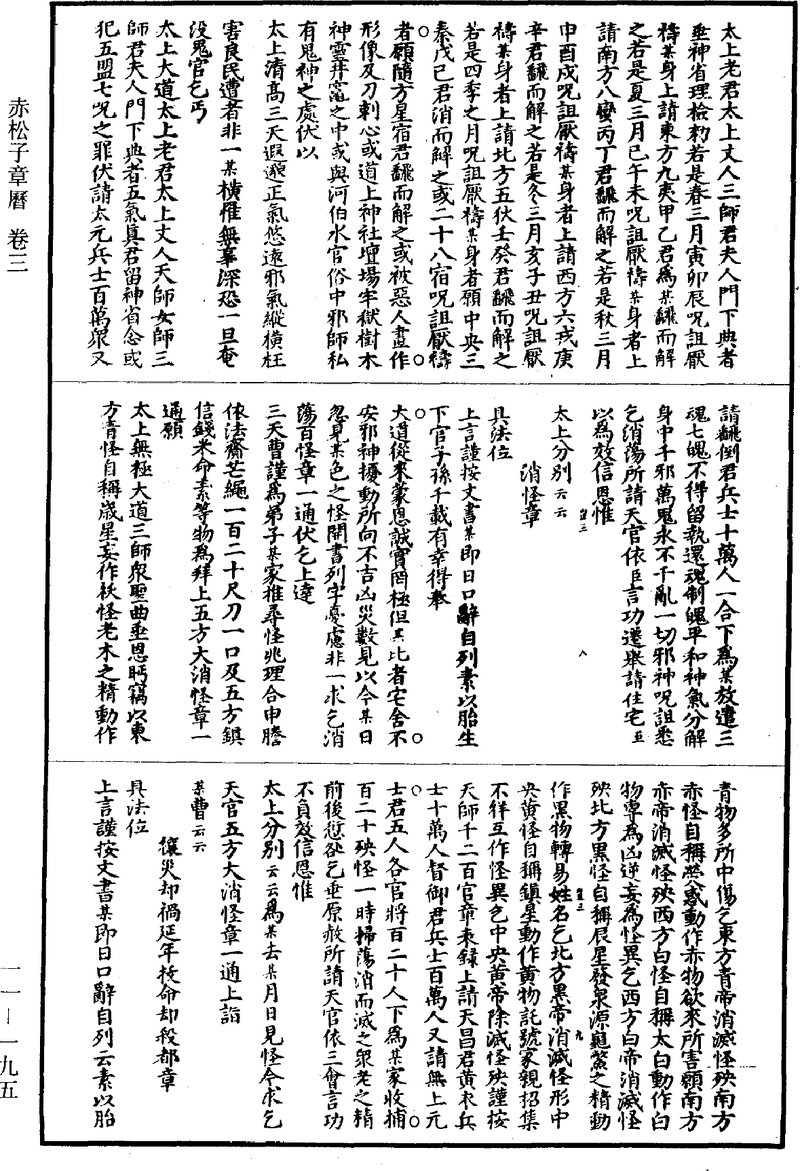 赤松子章曆 卷三
一一—一九五
太上老君太上丈人三師君夫人門下典者
垂神省理檢勑若是春三月寅卯辰呪詛厭
禱某身上請東方九夷甲乙君為某飜而解
之若是夏三月巳午未呪詛厭禱某身者上
請南方八蠻丙丁君飜而解之若是秋三月
申酉戌呪詛厭禱某身者上請西方六戎庚
辛君飜而解之若是冬三月亥子丑呪詛厭
禱某身者上請北方五狄壬癸君飜而解之
若是四季之月呪詛厭禱某身者願中央三
秦戊己君消而解之或二十八宿呪詛厭禱
者願隨方星宿君飜而解之或被惡人畫作
形像及刀刺心或道上神社壇場牢獄樹木
神靈井竈之中或與河伯水官俗中邪師私
有鬼神之處伏以
太上清高三天遐邈正氣悠遠邪氣縱橫枉
害良民遭者非一某橫罹無辜深恐一旦奄
没鬼官乞丐
太上大道太上老君太上丈人天師女師三
師君夫人門下典者五氣真君留神省念或
犯五盟七呪之罪伏請太元兵士百萬眾又
請飜倒君兵士十萬人一合下為某放遣三
魂七魄不得留執還魂制魄平和神氣分解
身中千邪萬鬼永不干亂一切邪神呪詛悉
乞消蕩所請天官依臣言功遷舉請住宅
以為效信恩惟
太上分別云云
消怪章
具法位
上言謹按文書某即日口辭自列素以胎生
下官子孫千載有幸得奉
大道從來蒙恩誠實罔極但某比者宅舍不
安邪神擾動所向不吉凶災數見以今某日
忽見某色之怪開書列字憂慮非一求乞消
蕩百怪章一通伏乞上達
三天曹謹為弟子某家推尋怪兆理合申謄
依法齋芒繩一百二十尺刀一口及五方鎮
信錢米命素等物為拜上五方大消怪章一
通願
太上無極大道三師眾聖曲垂恩眄竊以東
方青怪自稱歲星妄作祅怪老木之精動作
青物多所中傷乞東方青帝消滅怪殃南方
赤怪自稱熒惑動作赤物欲來所害願南方
赤帝消滅怪殃西方白怪自稱太白動作白
物專為凶逆妄為怪異乞西方白帝消滅怪
殃北方黑怪自稱辰星發泉源黿鱉之精動
作黑物轉易姓名乞北方黑帝消滅怪形中
央黃怪自稱鎮星動作黃物託號家親招集
不祥互作怪異乞中央黃帝除滅怪殃謹按
天師千二百官章表錄上請天昌君黃衣兵
士十萬人督御君兵士百萬人又請無上元
士君五人各官將百二十人下為某家收捕
百二十殃怪一時掃蕩消而滅之眾老之精
前後愆咎乞垂原赦所請天官依三會言功
不負效信恩惟
太上分別云云為某去某月日見怪今求乞
天官五方大消怪章一通上詣
某曹云云
禳災却禍延年拔命却殺都章
具法位
上言謹按文書某即日口辭自列云素以胎